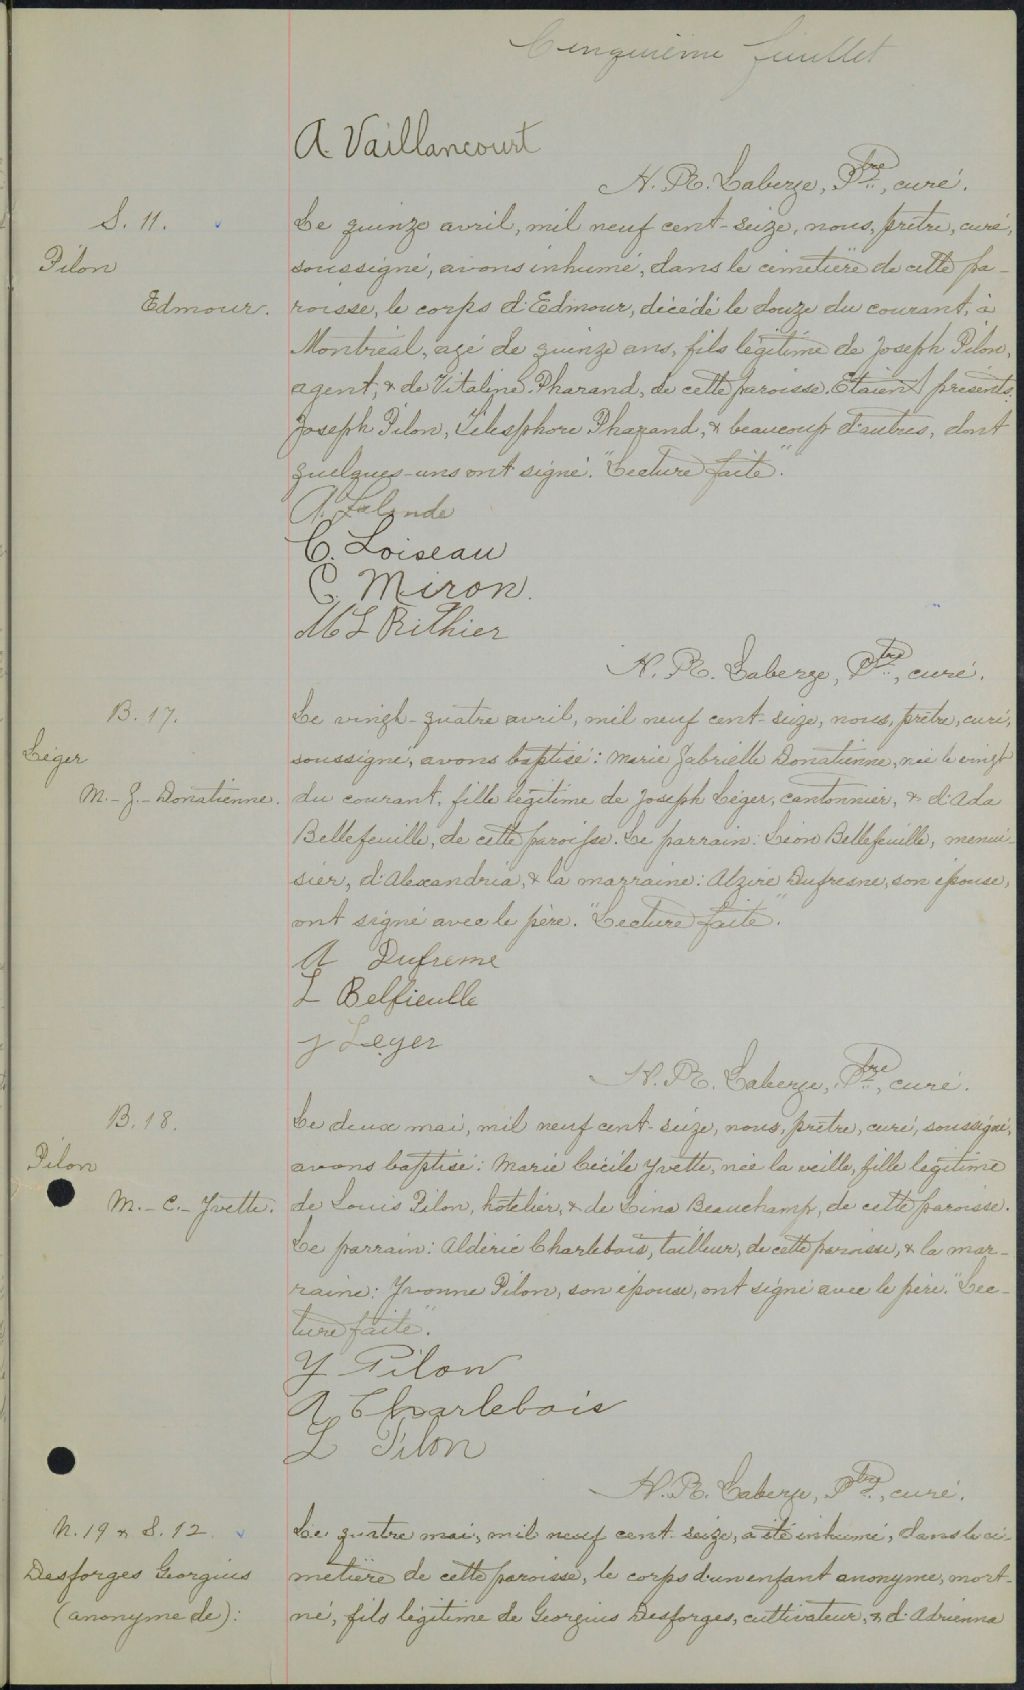 Cinquième feuillet
A. Vaillancourt
N. R. Laberge, Ptre, curé.
S. 11.
Pilon
Edmour.
Le quinze avril, mil neuf cent-seize, nous, prêtre, curé,
soussigné, avons inhumé, dans le cimetière de cette pa-
roisse, le corps d'Edmour, décédé le douze du courant, à
Montréal, agé de quinze ans, fils légitime de Joseph Pilon,
agent, & de Vitaline Pharand, de cette paroisse. Etaient présents:
Joseph Pilon, Télesphore Pharand, & beaucoup d'autres, dont
quelques-uns ont signé. "Lecture faite".
A. Lalonde
C. Loiseau
C. Miron.
M L Rithier
N. R. Laberge, Ptre, curé.
B. 17.
Léger
M.-G.-Donatienne.
Le vingt-quatre avril, mil neuf cent-seize, nous, prêtre, curé,
soussigné, avons baptisé: Marie Gabrielle Donatienne, née le vingt
du courant, fille légitime de Joseph Léger, cantonnier, & d'Ada
Bellefeuille, de cette paroisse. Le parrain: Léon Bellefeuille, menui-
sier, d'Alexandria, & la marraine: Alzire Dufresne, son épouse,
ont signé avec le père. "Lecture faite".
A Dufreme
L Belfieulle
J Leger
N. R. Laberge, Ptre, curé.
B. 18.
Pilon
M.-C.-Yvette.
Le deux mai, mil neuf cent-seize, nous, prêtre, curé, soussigné,
avons baptisé: Marie Cécile Yvette, née la veille, fille légitime
de Louis Pilon, hôtelier, & de Lina Beauchamp, de cette paroisse.
Le parrain: Aldéric Charlebois, tailleur, de cette paroisse, & la mar-
raine: Yvonne Pilon, son épouse, ont signé avec le père. "Lec-
ture faite".
Y Pilon
A Charlebois
L Pilon
N. R. Laberge, Ptre, curé.
N. 19 & S. 12.
Desforges Georgius
(anonyme de):
Le quatre mai, mil neuf cent-seize, a été inhumé, dans le ci-
metière de cette paroisse, le corps d'un enfant anonyme, mort-
né, fils légitime de Georgius Desforges, cultivateur, & d'Adrienna